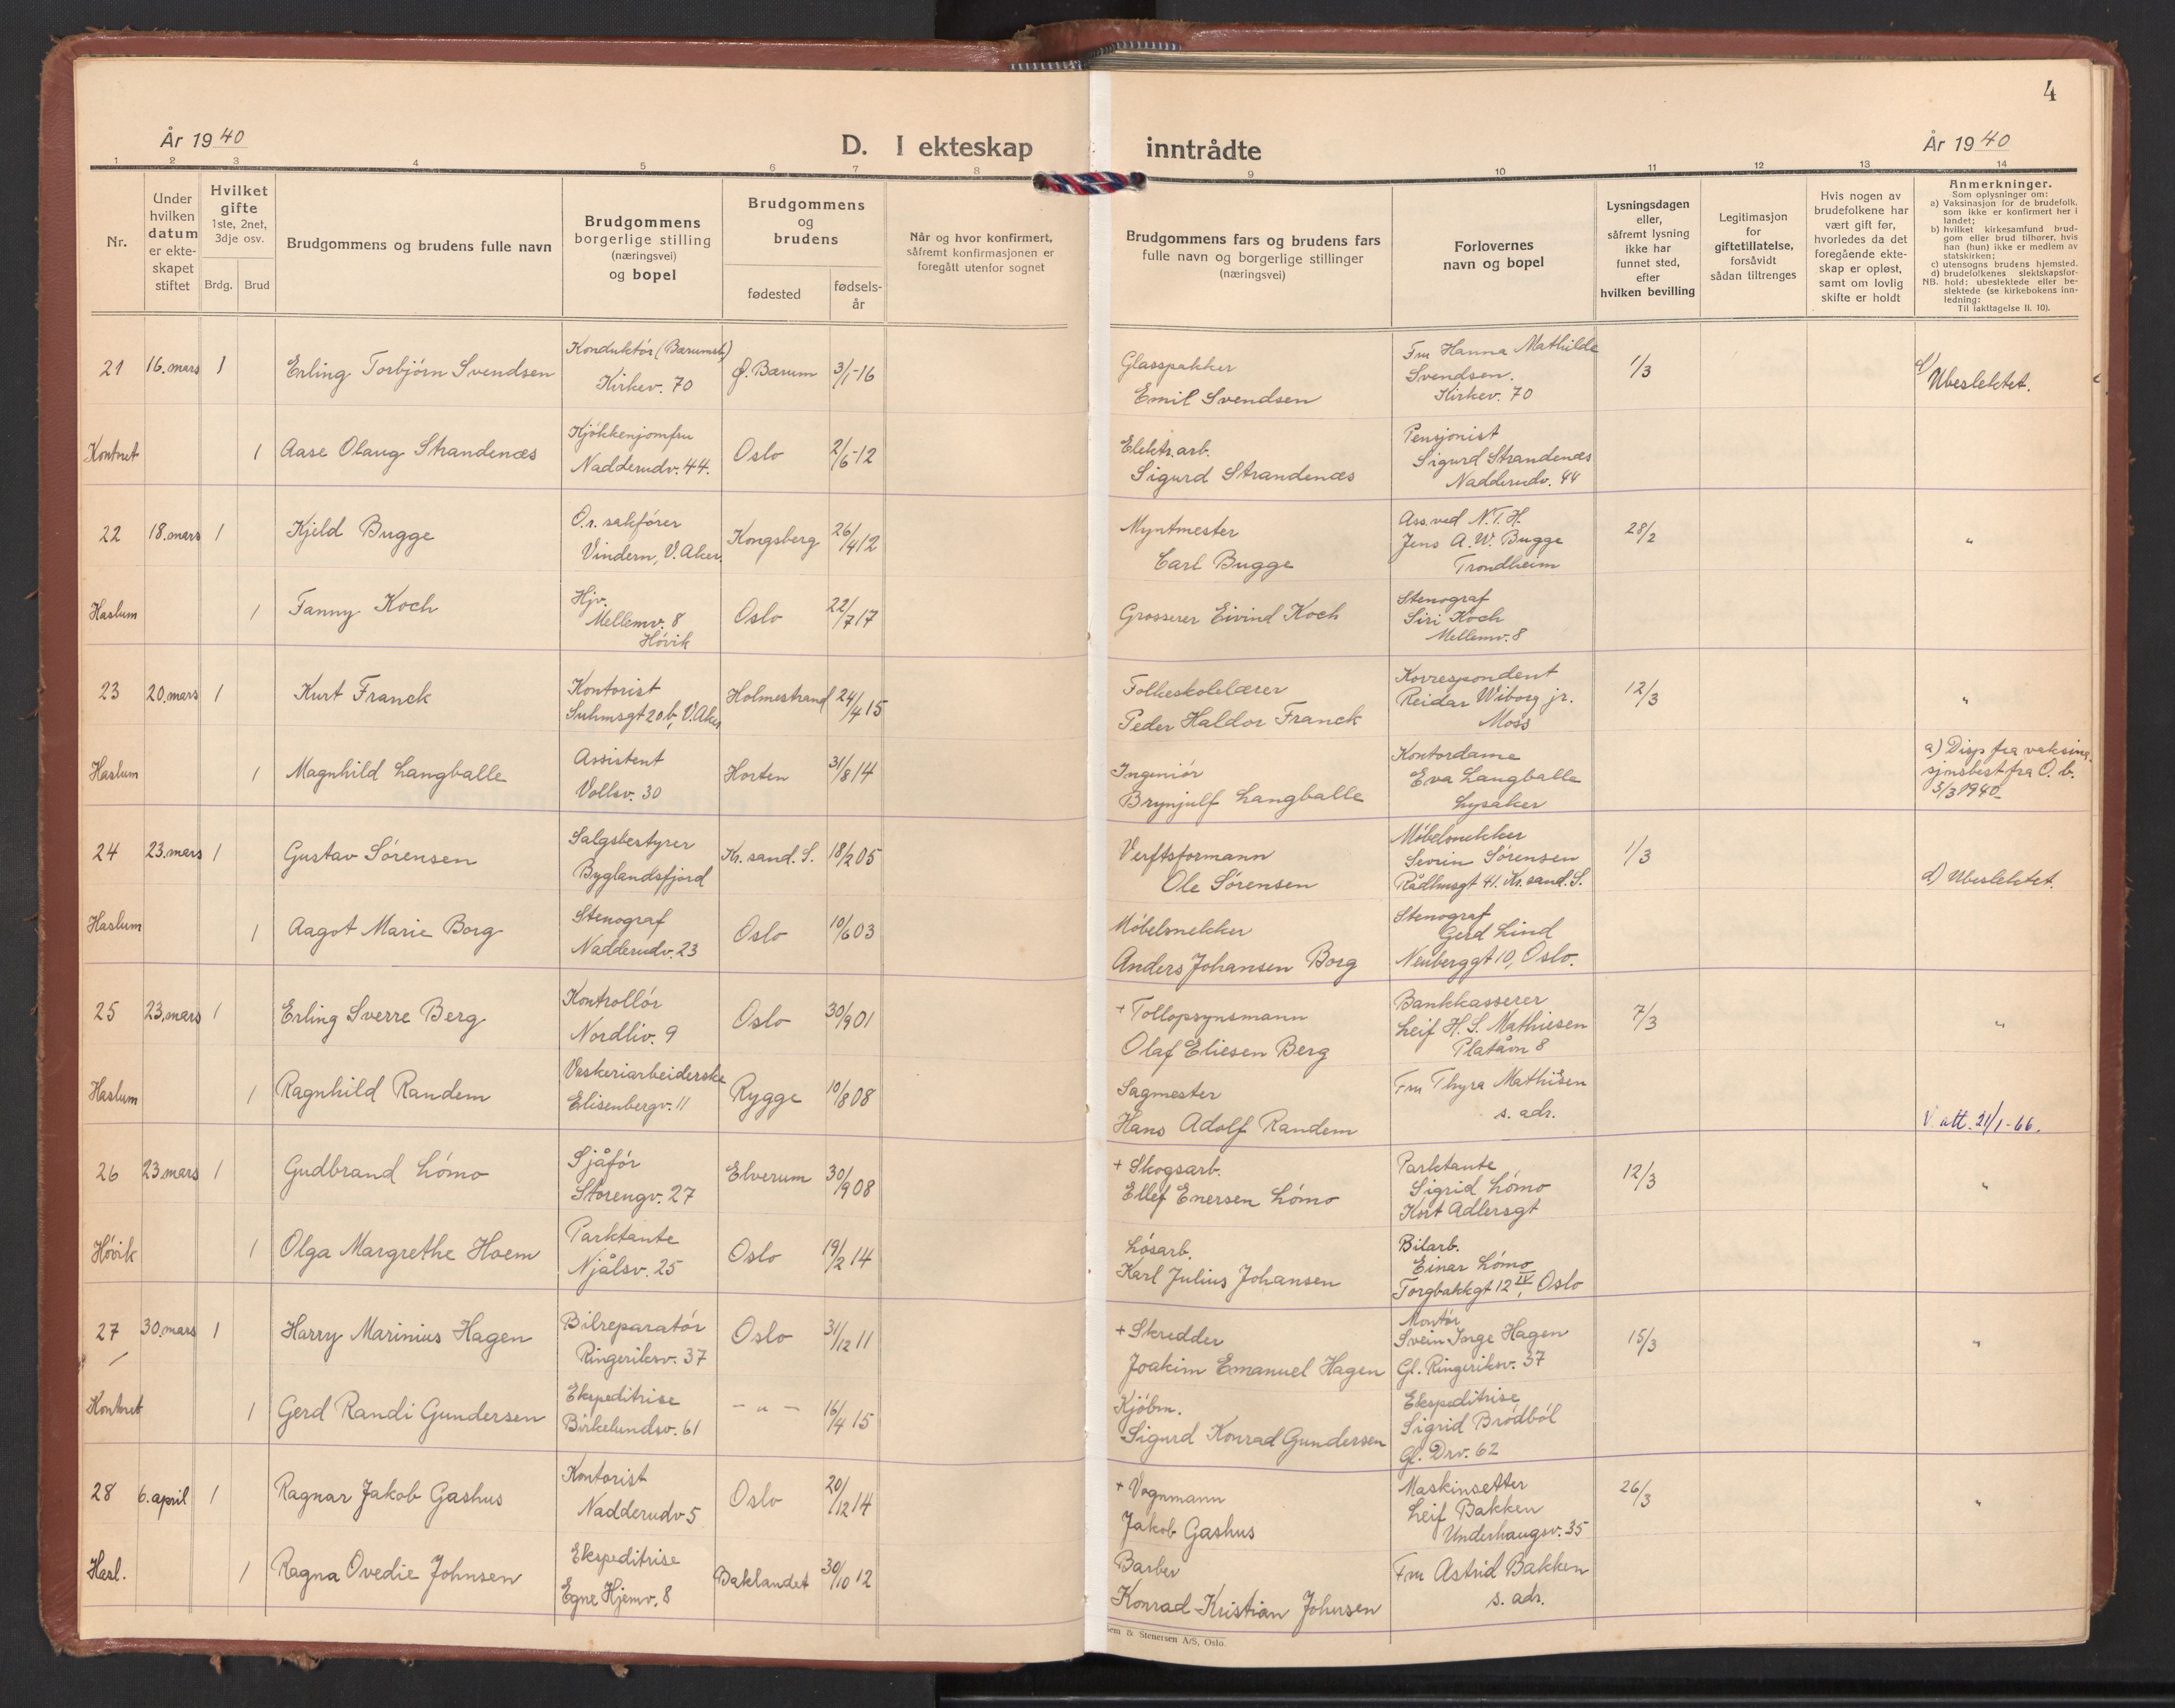 4
År 1940
D. I ekteskap inntrådte
År 1940
1 2 3 4 5 6 7 8 9 10 11 12 13 14
Nr.
Under hvilken datum er ekte-skapet stiftet
Hvilket gifte
1ste, 2net, 3dje osv.
Brdg. Brud
Brudgommens og brudens fulle navn
Brudgommens borgerlige stilling (næringsvei) og bopel
Brudgommens og brudens
fødested
fødsels-år
Når og hvor konfirmert, såfremt konfirmasjonen er foregått utenfor sognet
Brudgommens fars og brudens fars fulle navn og borgerlige stillinger (næringsvei)
Forlovernes navn og bopel
Lysningsdagen eller, såfremt lysning ikke har funnet sted, efter hvilken bevilling
Legitimasjon for giftetillatelse, forsåvidt sådan tiltrenges
Hvis nogen av brudefolkene har vært gift før, hvorledes da det foregående ekte-skap er opløst, samt om lovlig skifte er holdt
Anmerkninger.
Som oplysninger om:
a) Vaksinasjon for de brudefolk, som ikke er konfirmert her i landet;
b) hvilket kirkesamfund brud-gom eller brud tilhører, hvis han (hun) ikke er medlem av statskirken;
c) utensogns brudens hjemsted.
d) brudefolkenes slektskapsfor-hold: ubeslektede eller be-slektede (se kirkebokens inn-ledning:
NB.
Til iakttagelse II. 10).
21 16. mars 1 Erling Torbjörn Svendsen Konduktör (Bærumsb.) Kirkev. 70 Ö. Bærum 3/1-16 Glasspakker Emil Svendsen Fru Hanna Mathilde Svendsen. Kirkev. 70 1/3 d) Ubeslektet.
Kontret 1 Aase Olaug Strandenæs Kjökkenjomfru Nadderudv. 44. Oslo 2/6-12 Elektr.arb. Sigurd Strandenæs Pensjonist Sigurd Strandenæs Nadderudv. 44
22 18. mars 1 Kjeld Bugge O.r. sakförer Vindern, V. Aker. Kongsberg 26/4 12 Myntmester Carl Bugge Ass. ved N.T.H. Jens A.W. Bugge Trondheim 28/2 "
Haslum 1 Fanny Koch Hjv. Mellemv. 8 Hövik Oslo 22/7 17 Grosserer Eivind Koch Stenograf Siri Koch Mellemv. 8
23 20. mars 1 Kurt Franck Kontorist Suhmsgt 20.b, V. Aker Holmestrand 24/4 15 Folkeskolelærer Peder Haldor Franck Korrespondent Reidar Wiborg jr. Moss 12/3 "
Haslum 1 Magnhild Langballe Assistent Vollsv. 30 Horten 31/8 14 Ingeniör Brynjulf Langballe Kontordame Eva Langballe Lysaker a) Disp fra vaksina- sjnsbest fra O. b. 5/3 1940
24 23. mars 1 Gustav Sörensen Salgsbestyrer Byglandsfjord Kr. sand. S. 18/2 05 Verftsformann Ole Sörensen Möbelsnekker Sevrin Sörensen Rådhusgt 41. Kr. sand. S. 1/3 d) Ubeslektet.
Haslum 1 Aagot Marie Borg Stenograf Nadderudv. 23 Oslo 10/6 03 Möbelsnekker Anders Johansen Borg Stenograf Gerd Lind Neuberggt 10, Oslo.
25 23. mars 1 Erling Sverre Berg Kontrollör Nordliv. 9 Oslo 30/9 01 + Tollopsynsmann Olaf Eliesen Berg Bankkasserer Leif H. S. Mathiesen Platåvn 8 7/3 "
Haslum 1 Ragnhild Randem Vaskeriarbeiderske Elisenbergv. 11 Rygge 10/8 08 Sagmester Hans Adolf Randem Fru Thyra Mathisen s. adr. V. att. 21/1-66.
26 23. mars 1 Gudbrand Lömo Sjåför Storengv. 27 Elverum 30/9 08 + Skogsarb. Ellef Enersen Lömo Parktante Sigrid Lömo Kort Adlersgt 12/3 "
Hövik 1 Olga Margrethe Hoem Parktante Njålsv. 25 Oslo 19/2 14 Lösarb. Karl Julius Johansen Bilarb. Einar Lömo Torgbakkgt 12 IV, Oslo
27 30. mars 1 Harry Marinius Hagen Bilreparatör Ringeriksv. 37 Oslo 31/12 11 + Skredder Joakim Emanuel Hagen Montör Svein Inge Hagen Gl. Ringeriksv. 37 15/3 "
Kontret 1 Gerd Randi Gundersen Ekspeditrise Birkelundsv. 61 - " - 16/4 15 Kjöbm. Sigurd Konrad Gundersen Ekspeditrise Sigrid Brödböl Gl. Drv. 62
28 6. april 1 Ragnar Jakob Gashus Kontorist Nadderudv 5 Oslo 20/12 14 + Vognmann Jakob Gashus Maskinsetter Leif Bakken Underhaugsv. 35 26/3 "
Hasl. 1 Ragna Ovedie Johnsen Ekspeditrise Egne Hjemv. 8 Baklandet 30/10 12 Barber Konrad Kristian Johnsen Fru Astrid Bakken s. adr.
Sem & Stenersen A/S, Oslo.